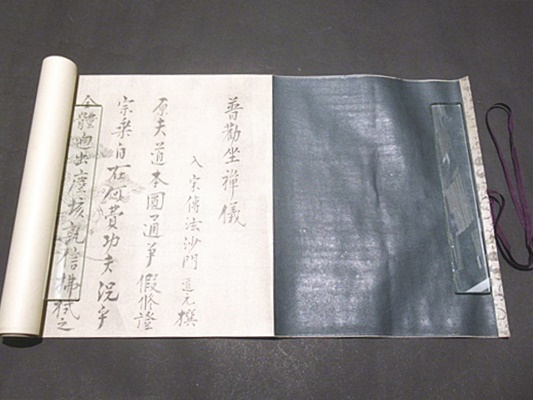 普勸坐禪儀
入宋傳法沙門道元撰
原夫道本圓通爭假修證
宗乘自在何費功夫況乎
全體逈出塵埃孰信拂拭之